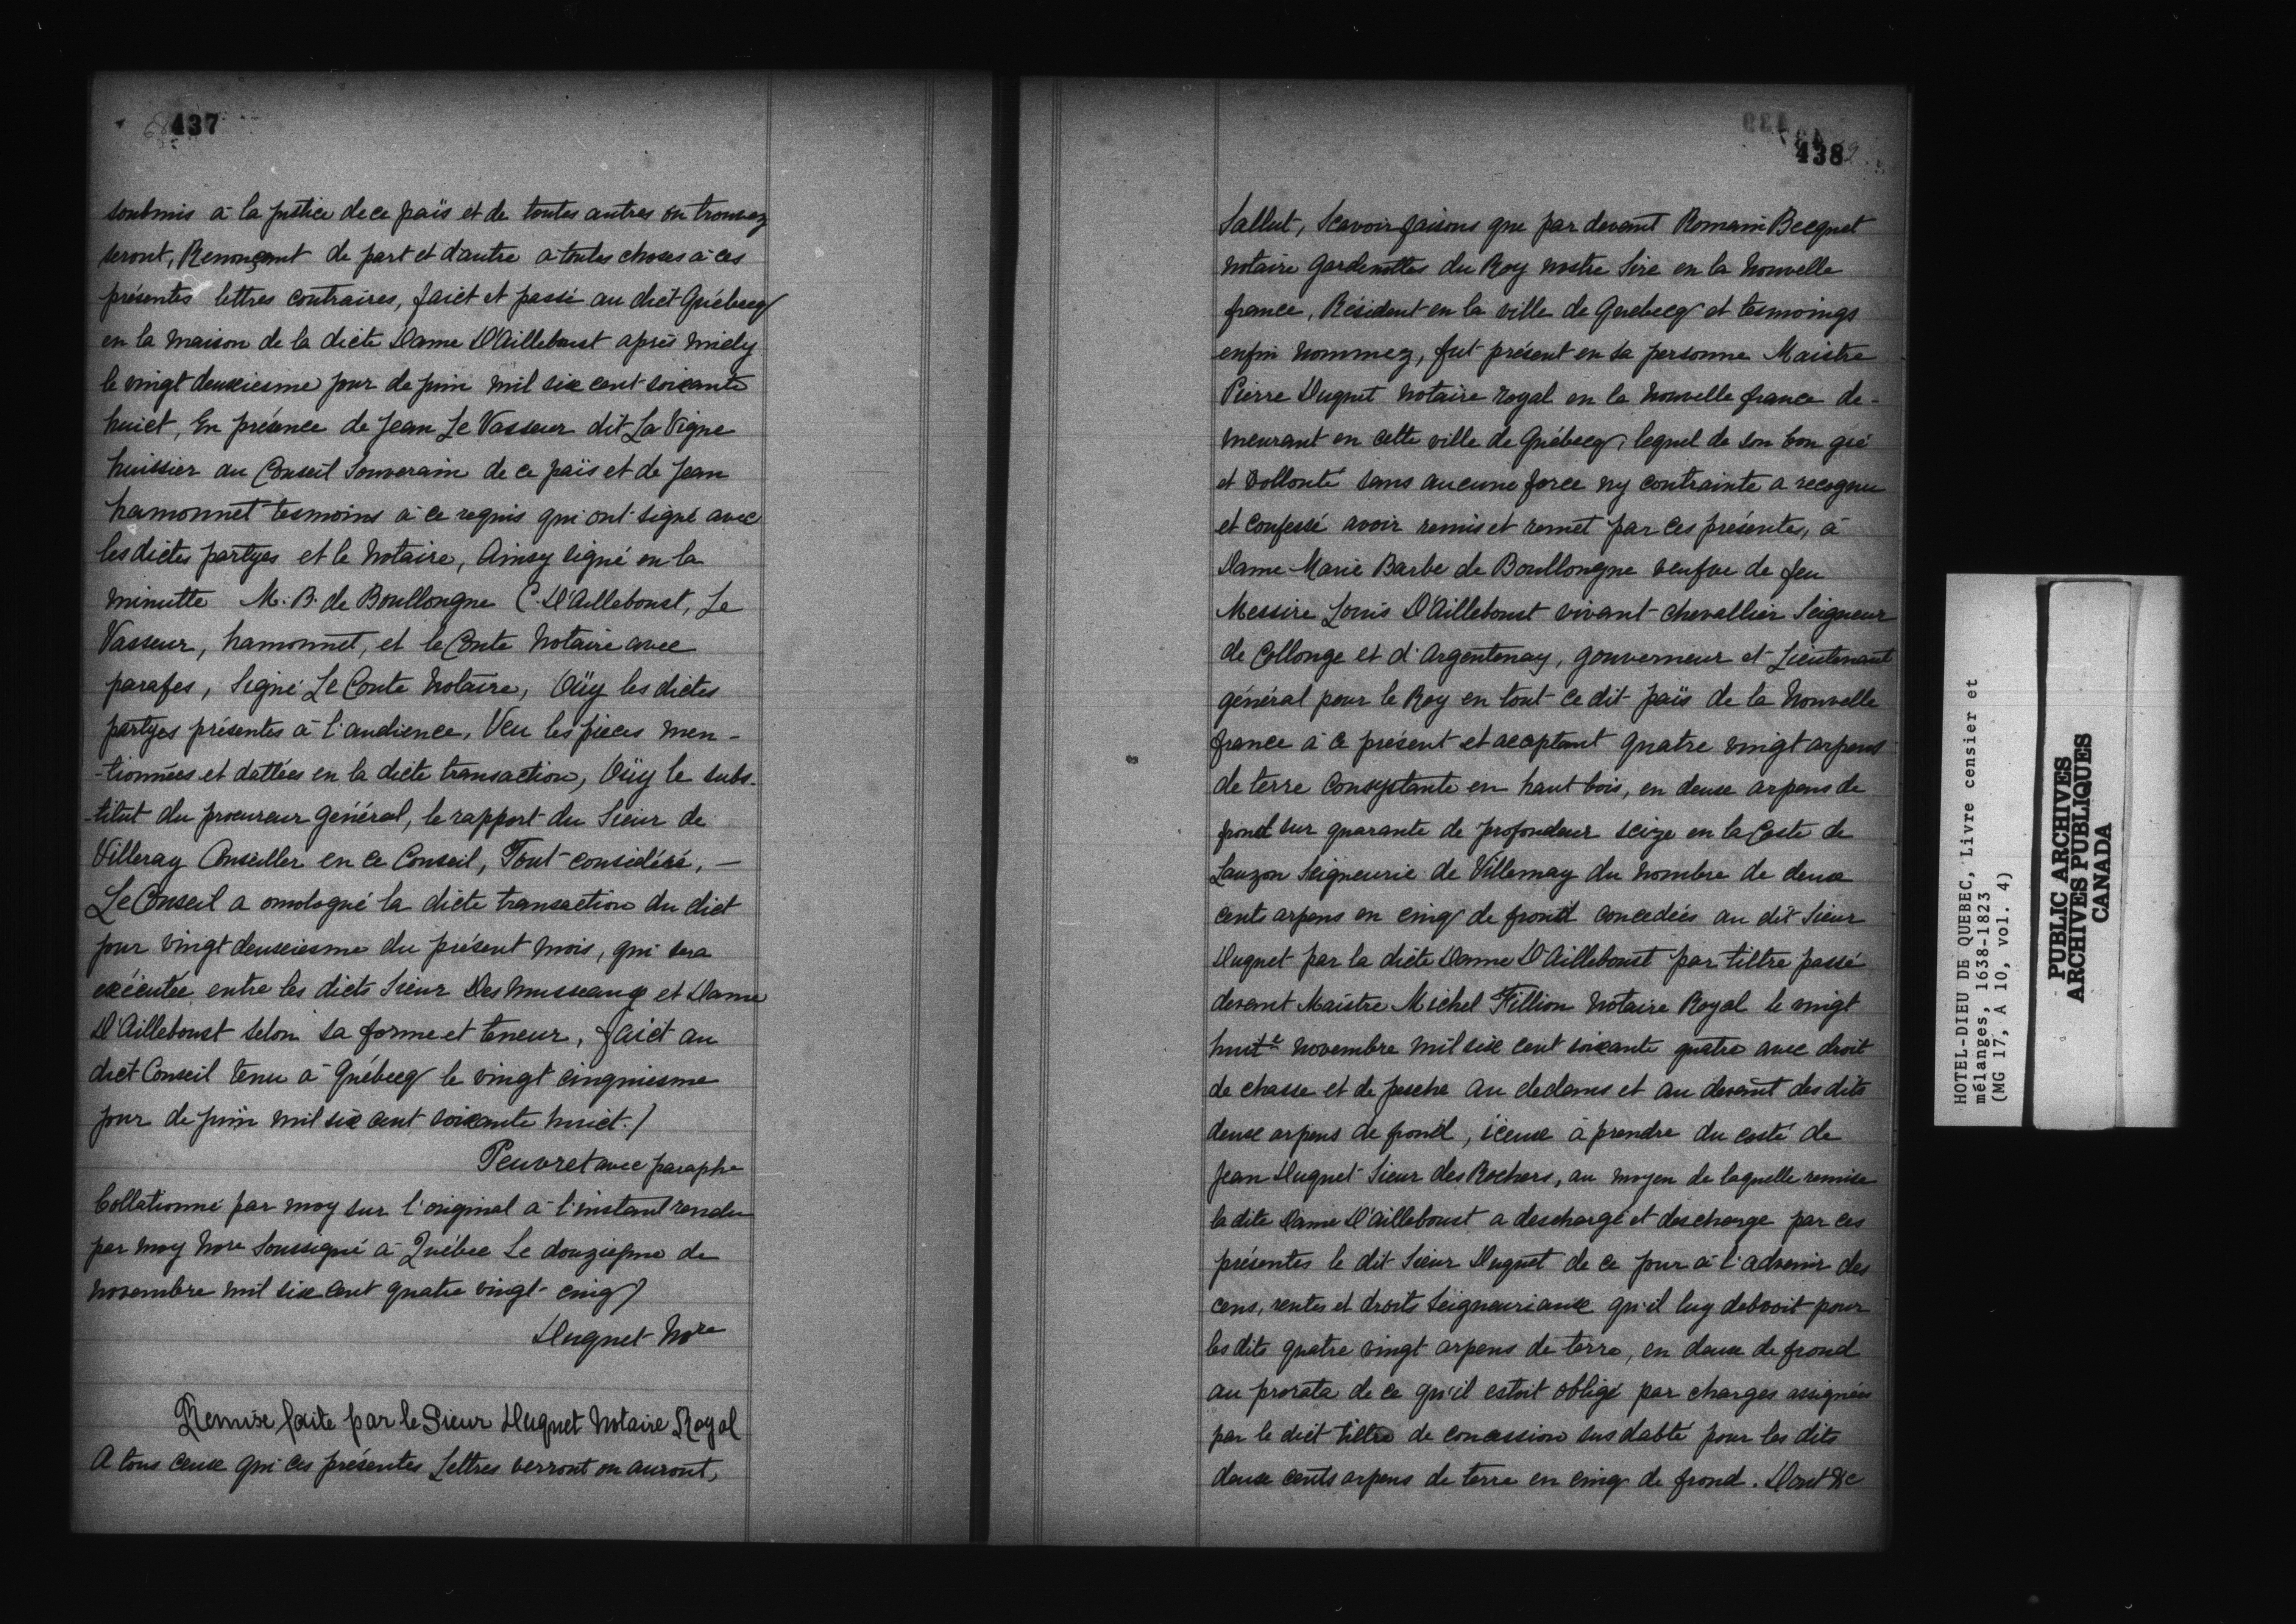 437
soubmis à la justice de ce païs et de toutes autres ou trouvez
seront, Renonçant de part et d'autre à toutes choses à ces
présentes lettres contraires, faict et passé au dict Québecq
en la maison de la dicte Dame D'Ailleboust après midy
le vingt deuxiesme jour de juin mil six cent soixante
huict, En présence de Jean Le Vasseur dit La Vigne
huissier au Conseil Souverain de ce païs et de Jean
hamonnet tesmoins à ce requis qui ont signé avec
les dictes partyes et le Notaire, Ainsy signé en la
minutte M. B. de Boullongne C. D'Ailleboust, Le
Vasseur, hamonnet, et le Conte Notaire avec
parafes, Signé Le Conte Notaire, Oüy les dictes
partyes présentes à l'audience, Veu les pièces men-
-tionnées et dattées en la dicte transaction, Oüy le subs-
-titut du procureur général, le rapport du Sieur de
Villeray Conseiller en ce Conseil, Tout considéré, —
Le Conseil a omologué la dicte transaction du dict
jour vingt deuxiesme du présent mois, qui sera
exécutée entre les dicts Sieur Des Musseaux et Dame
D'Ailleboust selon sa forme et teneur, faict au
dict Conseil tenu à Québecq le vingt cinquiesme
jour de juin mil six cent soixante huict. /
Peuvret avec paraphe
Collationné par moy sur l'original à l'instant rendu
par moy Nore Soussigné à Québec Le douziesme de
novembre mil six cent quatre vingt-cinq /
Duquet Nore
Remise faite par le Sieur Duquet Notaire Royal
A tous ceux qui ces présentes Lettres verront ou auront,
438
Sallut, Scavoir faisons que par devant Romain Becquet
notaire gardenottes du Roy nostre Sire en la Nouvelle
france, Résident en la ville de Quebecq et tesmoings
enfin nommez, fut présent en sa personne Maistre
Pierre Duquet Notaire royal en la Nouvelle france de-
meurant en cette ville de Québecq, lequel de son bon gré
et vollonté sans aucune force ny contrainte a recognu
et confessé avoir remis et remet par ces présentes, à
Dame Marie Barbe de Boullongne veufve de feu
Messire Louis D'Ailleboust vivant chevallier Seigneur
de Collonge et d'Argentenay, gouverneur et Lieutenant
général pour le Roy en tout ce dit païs de la Nouvelle
france à ce présent et aceptant quatre vingt arpens
de terre consystante en haut bois, en deux arpens de
frond sur quarante de profondeur scize en la Coste de
Lauzon Seigneurie de Villemay du nombre de deux
cents arpens en cinq de frond concedées au dit Sieur
Duquet par la dicte Dame D'Ailleboust par tiltre passé
devant Maistre Michel Fillion Notaire Royal le vingt
huite novembre mil six cent soixante quatre avec droit
de chasse et de pesche au dedans et au devant des dits
deux arpens de frond, iceux à prendre du costé de
Jean Duquet Sieur des Rochers, au moyen de laquelle remise
la dite Dame D'Ailleboust a deschargé et descharge par ces
présentes le dit Sieur Duquet de ce jour à l'advenir des
cens, rentes et droits Seigneuriaux qu'il luy debvoit pour
les dits quatre vingt arpens de terre, en deux de frond
au prorata de ce qu'il estoit obligé par charges assignées
par le dict tiltre de concession sus dabté pour les dits
deux cents arpens de terre en cinq de frond. Dont &c
HOTEL-DIEU DE QUEBEC, Livre censier et
mélanges, 1638-1823
(MG 17, A 10, vol. 4)
PUBLIC ARCHIVES
ARCHIVES PUBLIQUES
CANADA